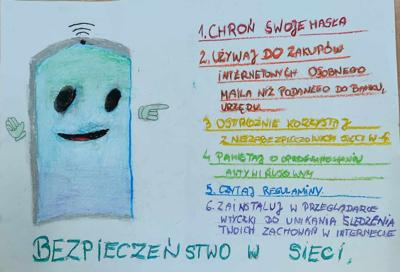 1. CHROŃ SWOJE HASŁA
2. UŻYWAJ DO ZAKUPÓW
INTERNETOWYCH OSOBNEGO
MAILA NIŻ PODANEGO DO BANKU,
URZĘDU
3. OSTROŻNIE KORZYSTAJ
Z NIEZABEZPIECZONYCH SIECI W-FI
4. PAMIĘTAJ O OPROGRAMOWANIU
ANTYWIRUSOWYM
5. CZYTAJ REGULAMINY
6. ZAINSTALUJ W PRZEGLĄDARCE
WTYCZKI DO UNIKANIA ŚLEDZENIA
TWOICH ZACHOWAŃ W INTERNECIE
BEZPIECZEŃSTWO W SIECI.